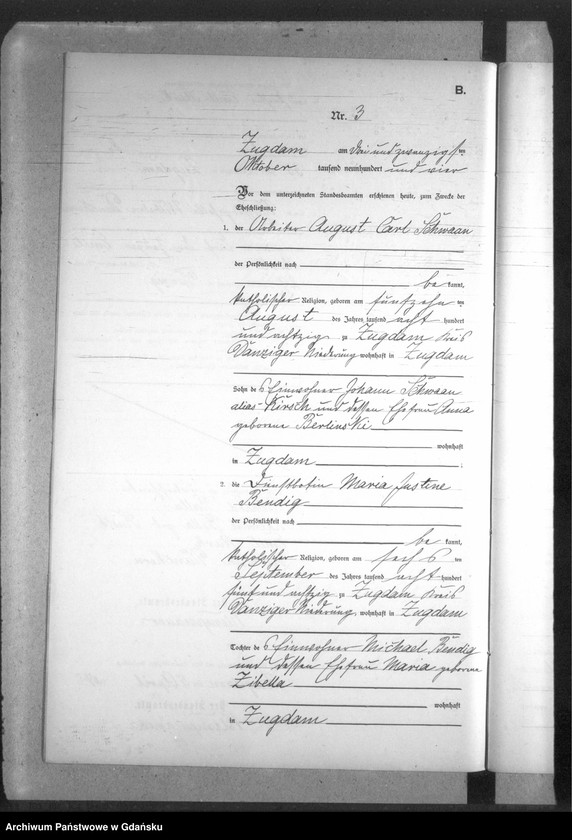 B.
Nr. 3
Zugdam am drei und zwanzigsten
Oktober tausend neunhundert und vier
Vor dem unterzeichneten Standesbeamten erschienen heute, zum Zwecke der
Eheschließung:
1. der Arbeiter August Carl Schwaan
der Persönlichkeit nach
be kannt,
katholischer Religion, geboren am fünfzehn ten
August des Jahres tausend acht hundert
und achtzig zu Zugdam Kreis
Danziger Niederung wohnhaft in Zugdam
Sohn des Einwohner Johann Schwaan
alias Kirsch und dessen Ehefrau Anna
geborene Berlinski
wohnhaft
in Zugdam ;
2. die Dienstbotin Maria Justine
Bendig
der Persönlichkeit nach
be kannt,
katholischer Religion, geboren am sechs ten
September des Jahres tausend acht hundert
fünf und achtzig zu Zugdam Kreis
Danziger Niederung, wohnhaft in Zugdam
Tochter des Einwohner Michael Bendig
und dessen Ehefrau Maria geborene
Zibella
wohnhaft
in Zugdam
Archiwum Państwowe w Gdańsku